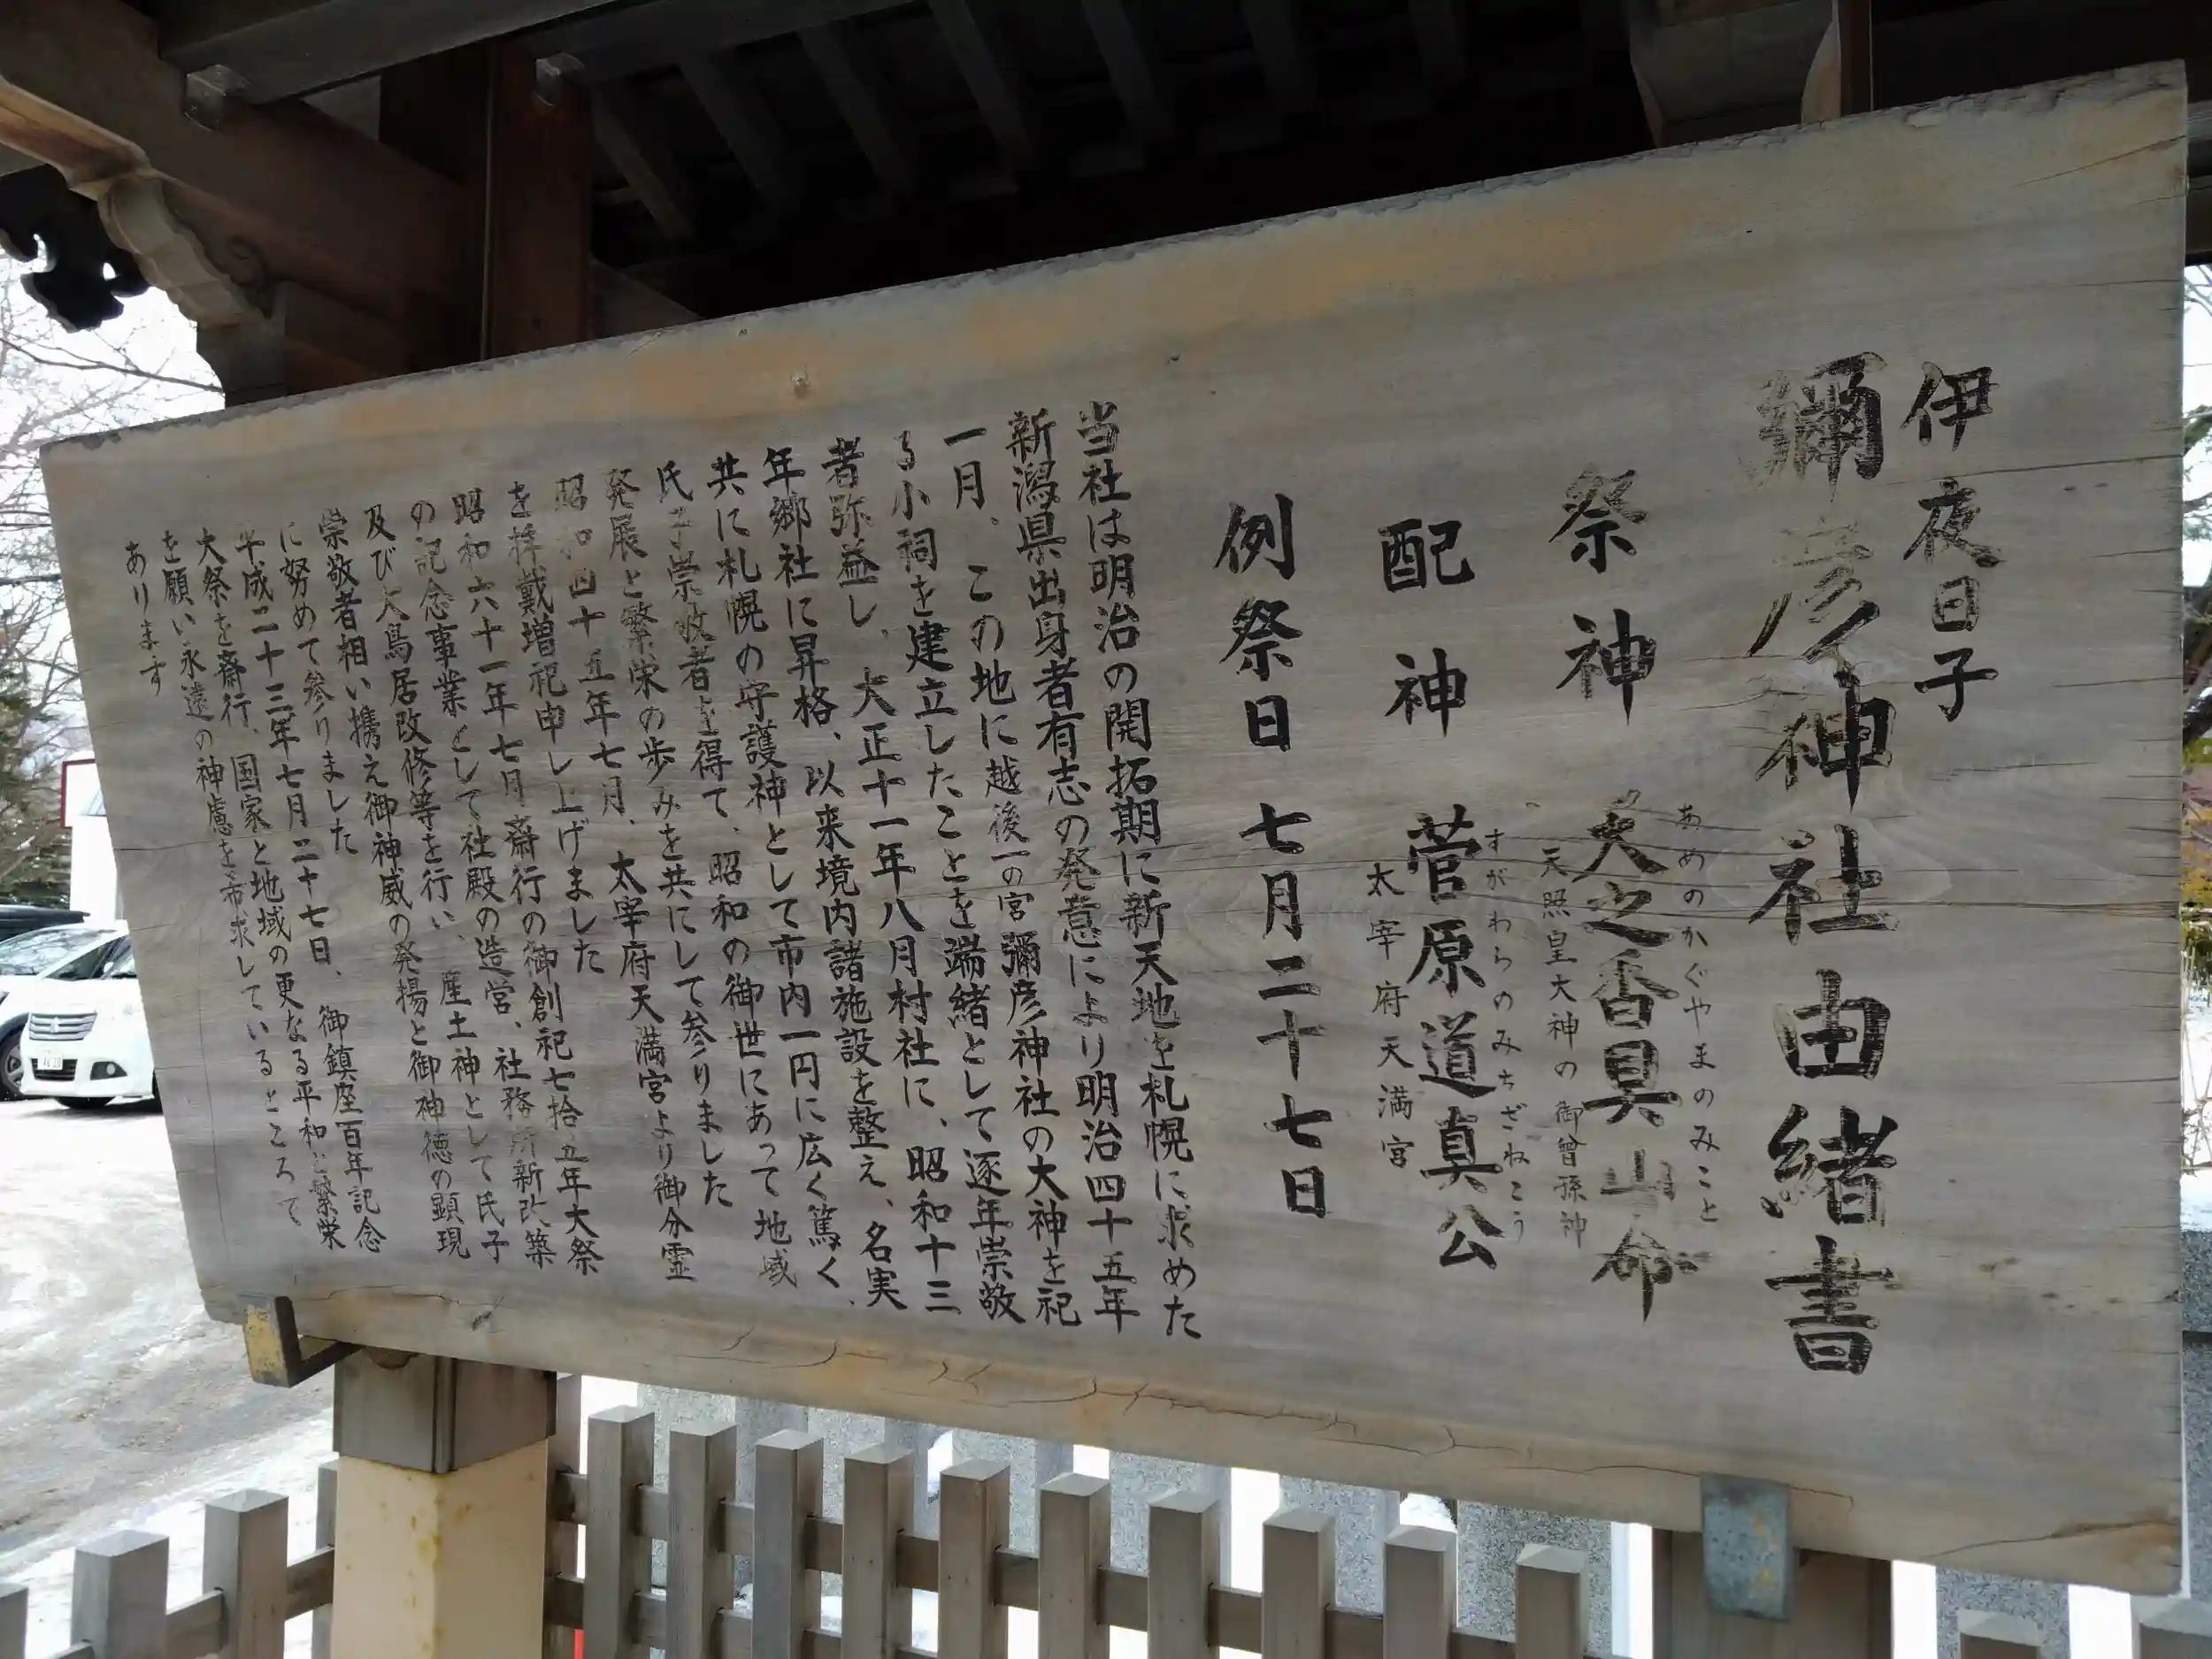 伊夜日子
彌彦神社由緒書
あめのかぐやまのみこと
祭神 天之香具山命
天照皇大神の御曾孫神
すがわらのみちざねこう
配神 菅原道真公
太宰府天満宮
例祭日 七月二十七日
当社は明治の開拓期に新天地を札幌に求めた
新潟県出身者有志の発意により明治四十五年
一月、この地に越後一の宮彌彦神社の大神を祀
る小祠を建立したことを端緒として逐年崇敬
者弥益し、大正十一年八月村社に、昭和十三
年郷社に昇格、以来境内諸施設を整え、名実
共に札幌の守護神として市内一円に広く篤く、
氏子崇敬者を得て、昭和の御世にあって地域
発展と繁栄の歩みを共にして参りました
昭和四十五年七月、太宰府天満宮より御分霊
を拝戴増祀申し上げました
昭和六十一年七月斎行の御創祀七拾五年大祭
の記念事業として社殿の造営、社務所新改築
及び大鳥居改修等を行い、産土神として氏子
崇敬者相い携え御神威の発揚と御神徳の顕現
に努めて参りました
平成二十三年七月二十七日、御鎮座百年記念
大祭を斎行、国家と地域の更なる平和と繁栄
を願い永遠の神慮を希求しているところで
あります